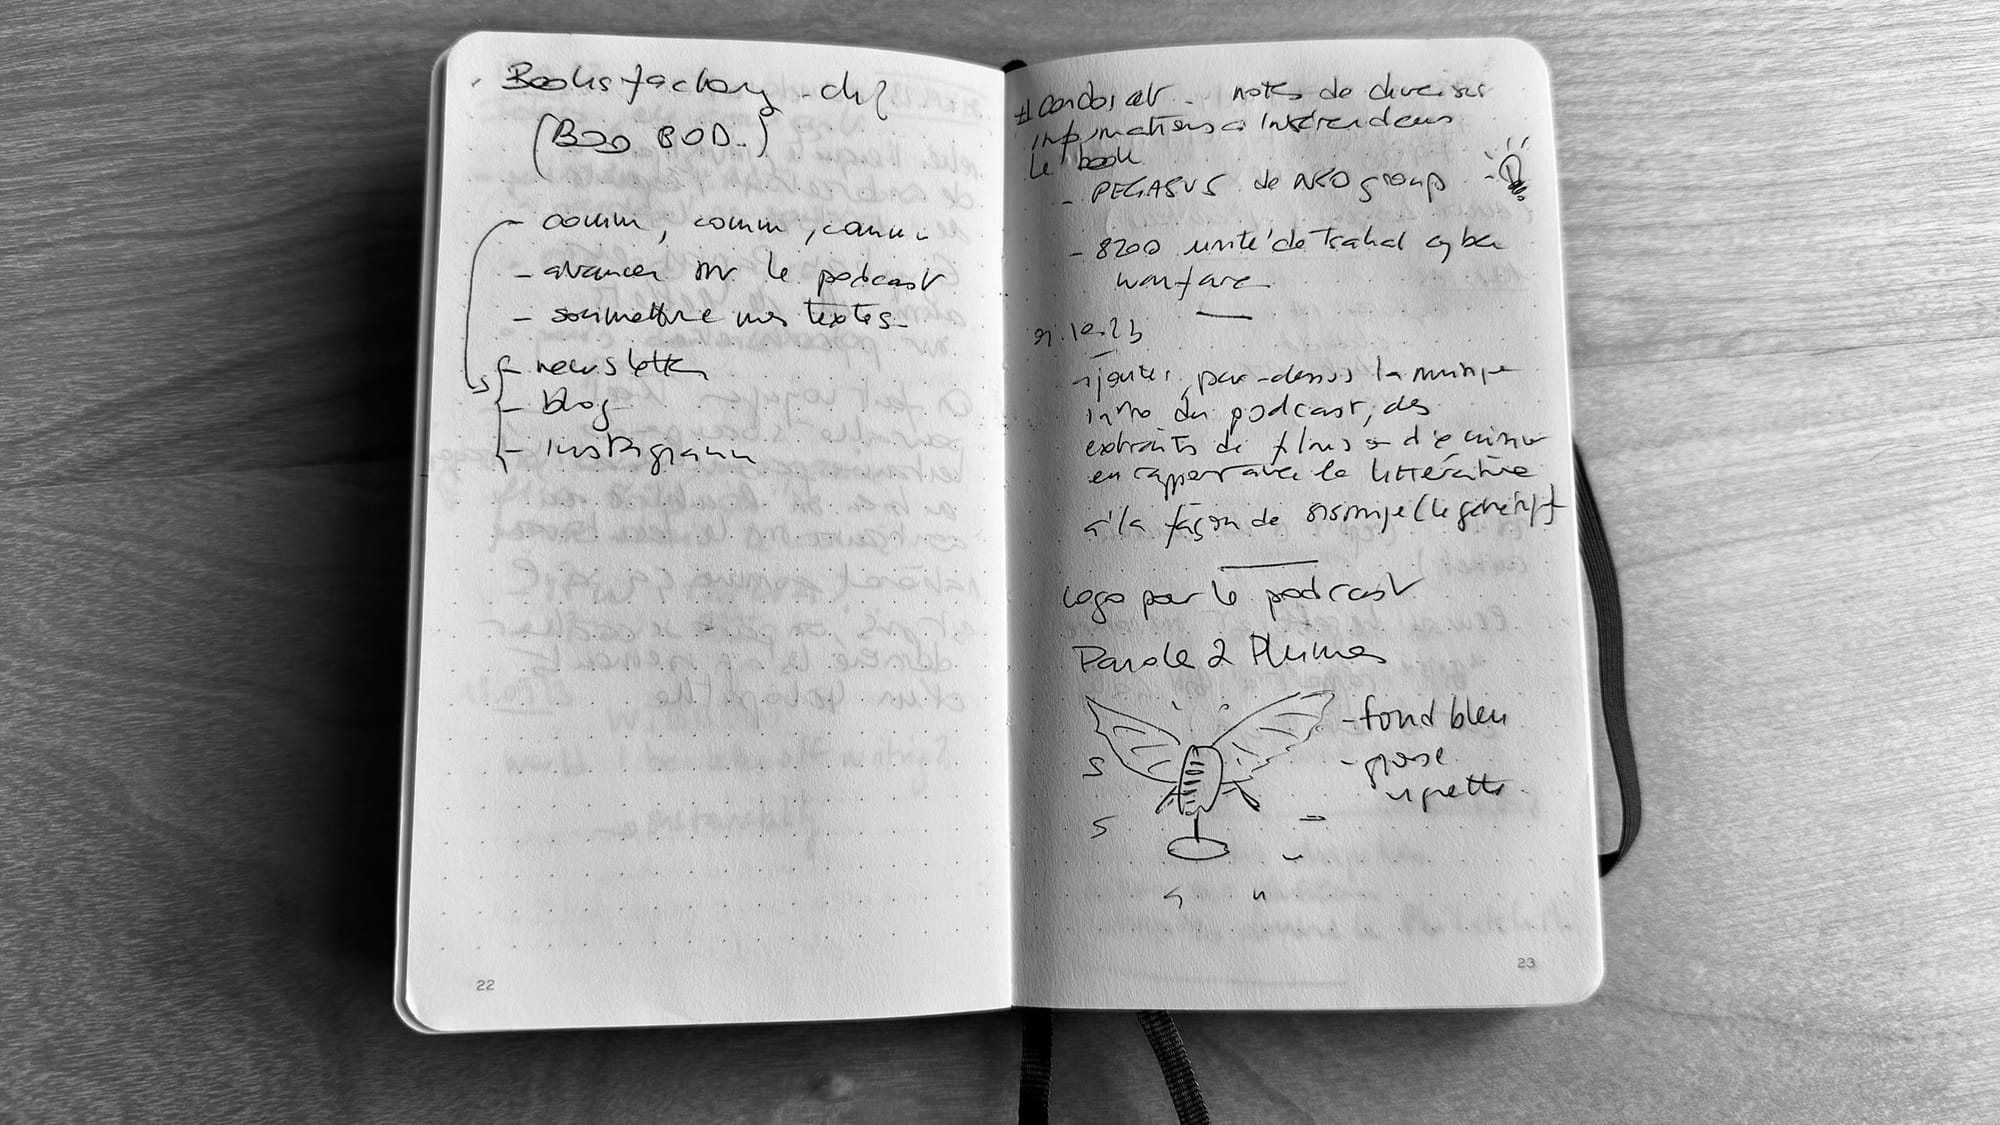 Booksfactory.ch
(BoD BOD..)
- comm, comm, comm.
- avancer sur le podcast
- soumettre mes textes
- newsletter
- blog
- instagram
22
# condor art - notes de diverses
informations à insérer dans
le book
- PEGASUS de NSO group
- 8200 unité de Tsahal cyber
warfare
10.23
ajouter, par-dessus la musique
intro du podcast, des
extraits de films d'
en rapport avec la littérature
à la façon de (le générique)
Logo pour le podcast
Parole 2 Plumes
- fond bleu
- grosse
vignette.
23